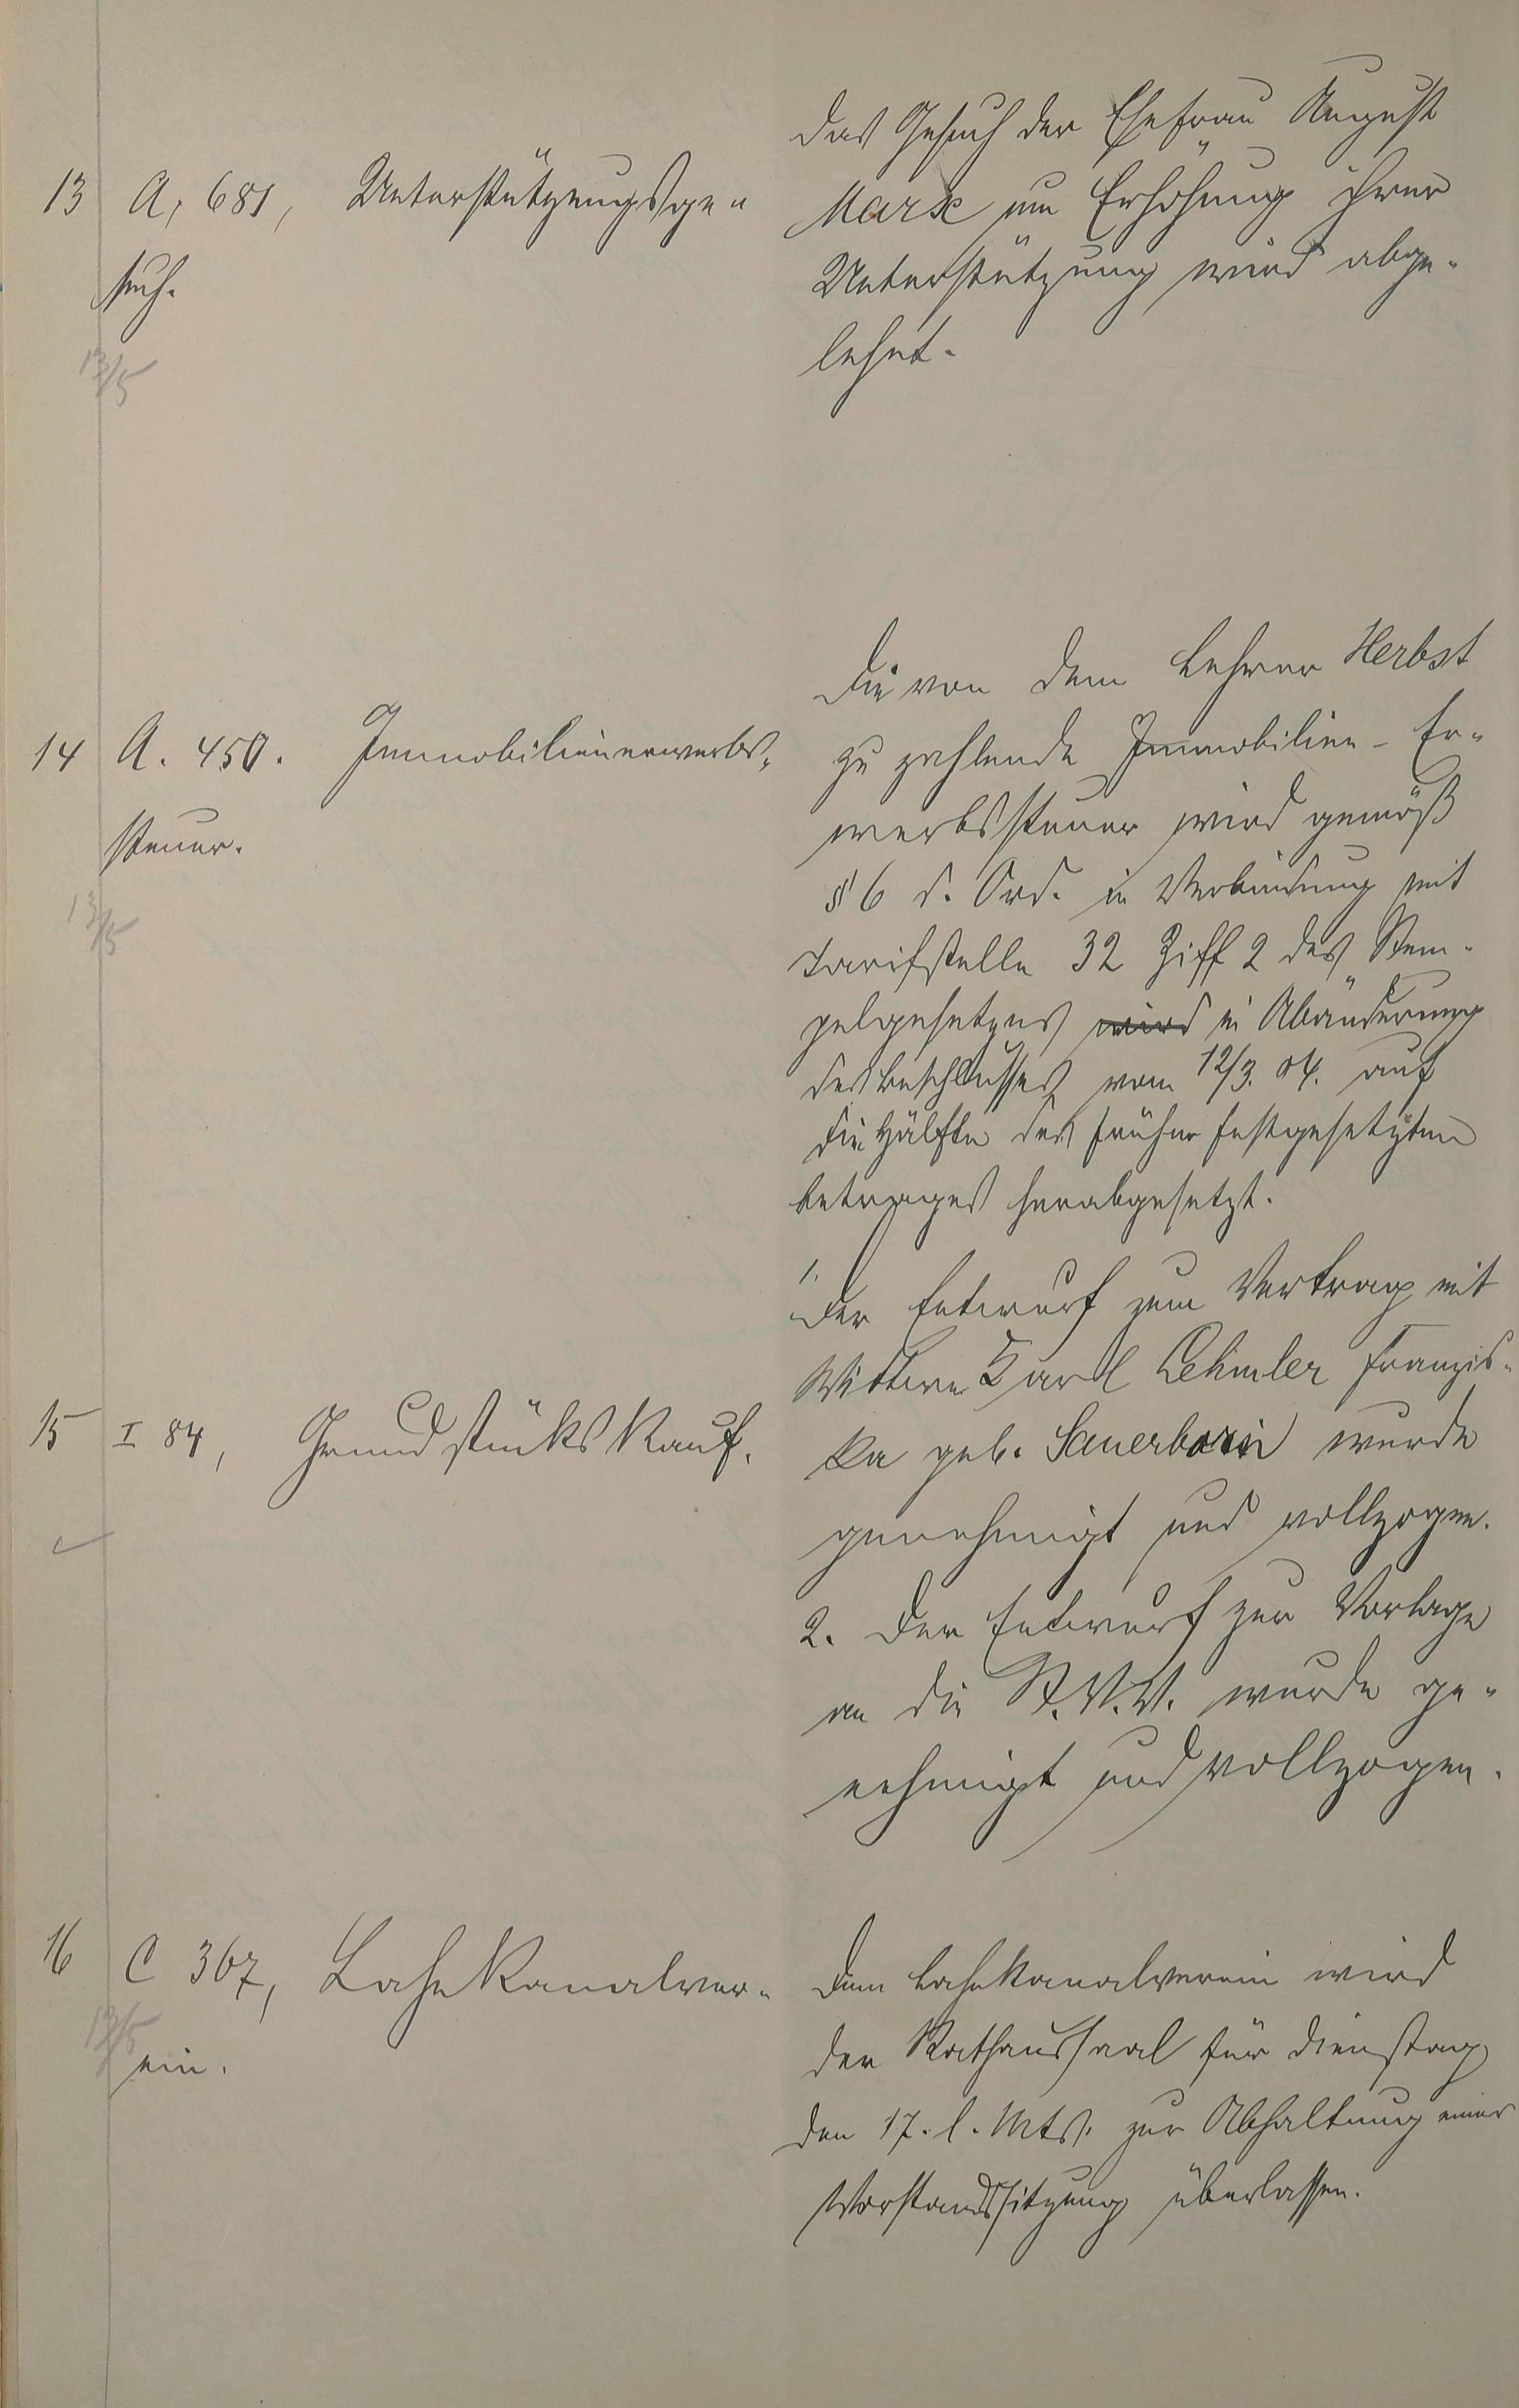 13 A, 681, Unterstützungsge-
such.
13/5
Das Gesuch der Ehefrau August
Marx um Erhöhung ihrer
Unterstützung wird abge-
lehnt.
14 A. 450. Immobilienerwerbs-
steuer.
13/5
Die von dem Lehrer Herbst
zu zahlende Immobilien-Er-
werbssteuer wird gemäß
§ 6 d. Ord. in Verbindung mit
Tarifstelle 32 Ziff 2 des Stem-
pelgesetzes wird in Abänderung
des Beschlusses vom 12/3. 04. auf
die Hälfte des früher festgesetzten
Betrages herabgesetzt.
15 I 84, Grundstückskauf.
1.
Der Entwurf zum Vertrag mit
Wittwe Karl Lehmler Franzis-
ka geb. Sauerborn wurde
genehmigt und vollzogen.
2. Der Entwurf zur Vorlage
an die St.V.V. wurde ge-
nehmigt und vollzogen.
16 C 367, Lahnkanalver-
13/5
ein.
Dem Lahnkanalverein wird
der Rathaussaal für Dienstag
den 17. l. Mts. zur Abhaltung einer
Vorstandssitzung überlassen.